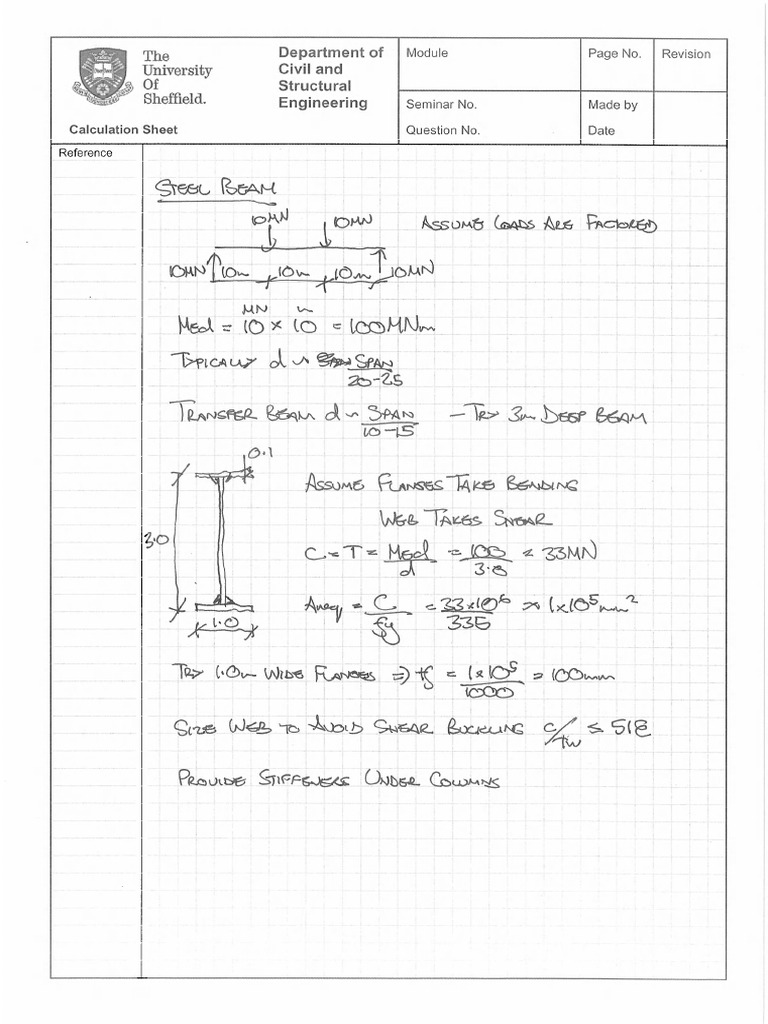 The
University
Of
Sheffield.
Calculation Sheet
Department of
Civil and
Structural
Engineering
Module
Page No.
Revision
Seminar No.
Made by
Question No.
Date
Reference
STEEL BEAM
10MN 10MN ASSUME LOADS ARE FACTORED
10MN 10m 10m 10m 10MN
MN m
Med = 10 × 10 = 100MNm
TYPICALLY d ~ SPAN
20-25
TRANSFER BEAM d ~ SPAN - TRY 3m DEEP BEAM
10-15
0.1
ASSUME FLANGES TAKE BENDING
WEB TAKES SHEAR
3.0
C = T = Med = 100 = 33MN
d 3.0
Areq = C = 33×10⁶ ≈ 1×10⁵mm²
fy 335
1.0
TRY 1.0m WIDE FLANGES => tf = 1×10⁵ = 100mm
1000
SIZE WEB TO AVOID SHEAR BUCKLING c/tw ≤ 51ε
PROVIDE STIFFENERS UNDER COLUMNS